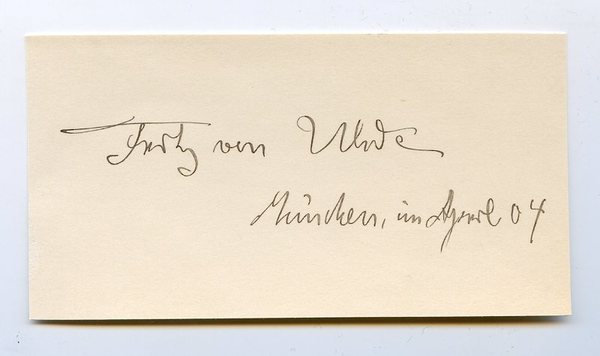 Fritz von Uhde
München, im April 04